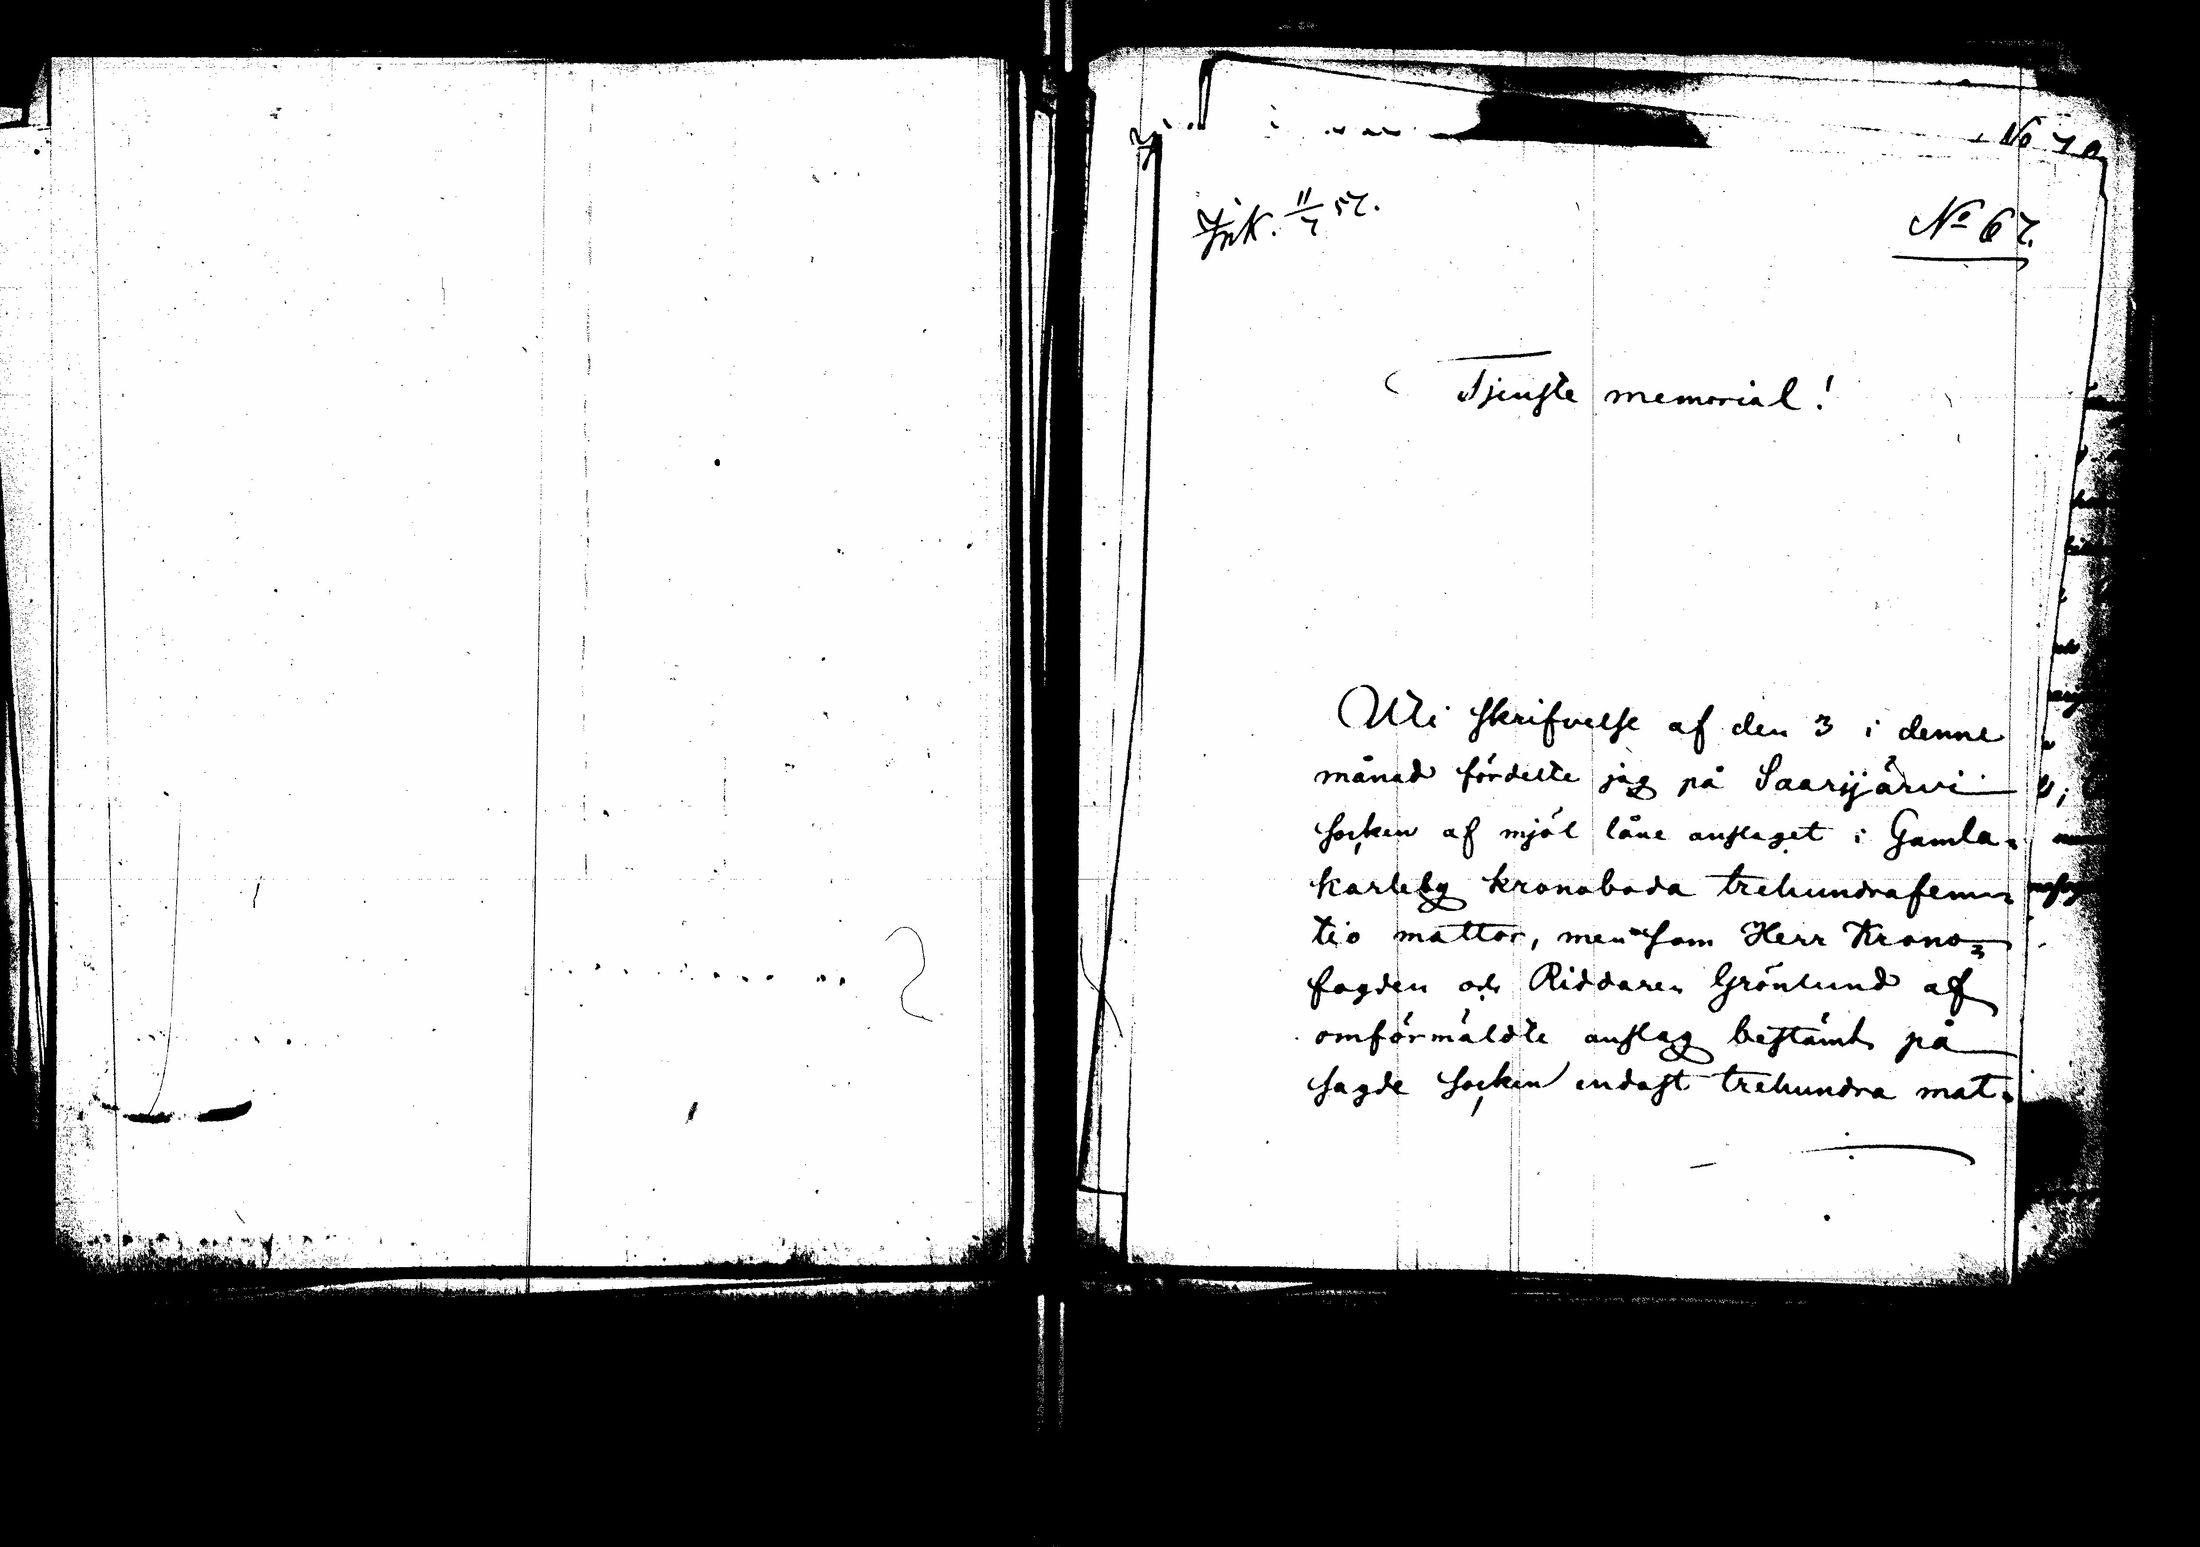 No 70
Ink. 11/7 57.
No 67.
Tjenste memorial!
Uti skrifvelse af den 3 i denne
månad fördelte jag på Saarijärvi
socken af mjöl låne anslaget i Gamla-
karleby kronoboda trehundrafem-
tio mattor, men som Herr Krono-
fogden och Riddaren Grönlund af
omförmäldte anslag bestämt på
sagde socken endast trehundra mat-